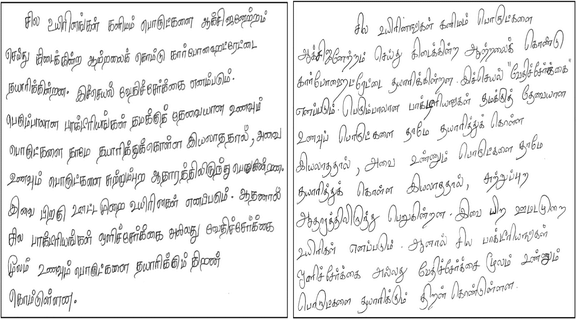 சில உயிரினங்கள் கனிமம் பொருட்களை ஆக்சிஜனேற்றம்
செய்து கிடைக்கின்ற ஆற்றலைக் கொண்டு கார்போஹைட்ரேட்டை
தயாரிக்கின்றன. இச்செயல் வேதிச்சேர்க்கை எனப்படும்.
பெரும்பாலான பாக்டீரியங்கள் தமக்குத் தேவையான உணவுப்
பொருட்களை தாமே தயாரித்துக்கொள்ள இயலாததால், அவை
உணவுப் பொருட்களை சுற்றுப்புற ஆதாரத்திலிருந்து பெறுகின்றன.
இவை பிறதி ஊட்ட முறை உயிரிகள் எனப்படும். ஆனால்
சில பாக்டீரியங்கள் ஒளிச்சேர்க்கை அல்லது வேதிச்சேர்க்கை
மூலம் உணவுப் பொருட்களை தயாரிக்கும் திறன்
கொண்டுள்ளன.
சில உயிரினங்கள் கனிமம் பொருட்களை
ஆக்சிஜனேற்றம் செய்து கிடைக்கின்ற ஆற்றலைக் கொண்டு
கார்போஹைட்ரேட்டை தயாரிக்கின்றன. இச்செயல் "வேதிச்சேர்க்கை"
எனப்படும். பெரும்பாலான பாக்டீரியங்கள் தமக்குத் தேவையான
உணவுப் பொருட்களை தாமே தயாரித்துக் கொள்ள
இயலாததால், அவை உணவுப் பொருட்களை தாமே
தயாரித்துக் கொள்ள இயலாததால், சுற்றுப்புற
ஆதாரத்திலிருந்து பெறுகின்றன. இவை பிற ஊட்டமுறை
உயிரிகள் எனப்படும். ஆனால் சில பாக்டீரியங்கள்
ஒளிச்சேர்க்கை அல்லது வேதிச்சேர்க்கை மூலம் உணவுப்
பொருட்களை தயாரிக்கும் திறன் கொண்டுள்ளன.